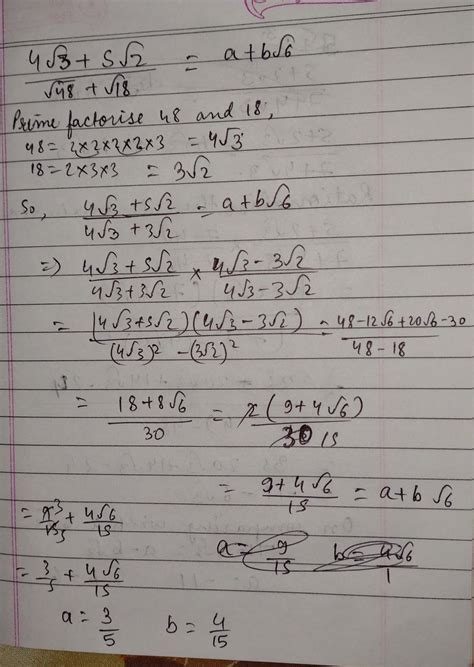 4√3 + 5√2 / √48 + √18 = a+b√6
Prime factorise 48 and 18,
48 = 2×2×2×2×3 = 4√3
18 = 2×3×3 = 3√2
So, 4√3 + 5√2 / 4√3 + 3√2 = a+b√6
=) 4√3+5√2 / 4√3+3√2 × 4√3-3√2 / 4√3-3√2
= (4√3+5√2)(4√3-3√2) / (4√3)² - (3√2)² = 48-12√6+20√6-30 / 48-18
= 18+8√6 / 30 = 2(9+4√6) / 30 15
= 9+4√6 / 15 = a+b√6
= 9 3 / 15 5 + 4√6 / 15
a = 9 / 15
= 3/5 + 4√6 / 15
a = 3/5 b = 4/15